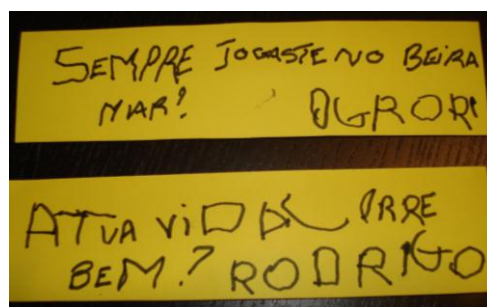 SEMPRE JOGASTE NO BEIRA
MAR?
OGROR
ATUA ViDA CORRE
BEM? RODRIGO